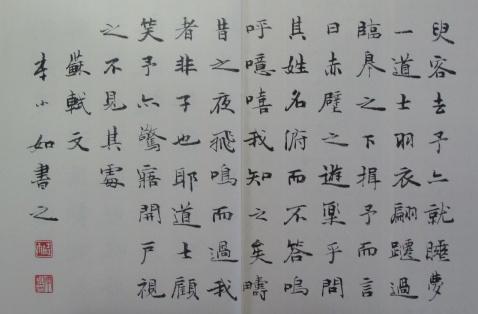 臾客去予亦就睡夢
一道士羽衣翩躚過
臨皋之下揖予而言
曰赤壁之遊樂乎問
其姓名俯而不答嗚
呼噫嘻我知之矣疇
昔之夜飛鳴而過我
者非子也耶道士顧
笑予亦驚寤開戶視
之不見其處
蘇軾文
李小如書之